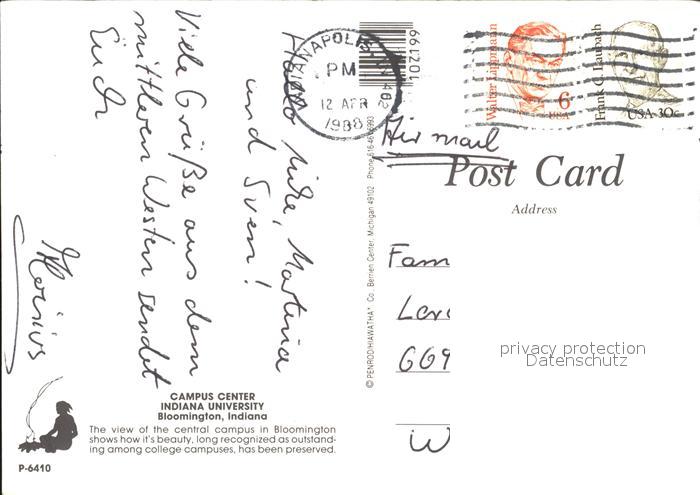 Hallo Silke, Martina
und Sven!
Viele Grüße aus dem
mittleren Westen sendet
Euch
CAMPUS CENTER
INDIANA UNIVERSITY
Bloomington, Indiana
The view of the central campus in Bloomington
shows how it's beauty, long recognized as outstand-
ing among college campuses, has been preserved.
P-6410
© PENROD/HIAWATHA Co., Berrien Center, Michigan 49102 Phone 616-461-6993
661201
INDIANAPOLIS, IN 462
PM
12 APR
1988
Walter Lippmann
6
USA
Frank C. Laubach
USA 30c
Air mail
Post Card
Address
Fam
609
W
privacy protection
Datenschutz